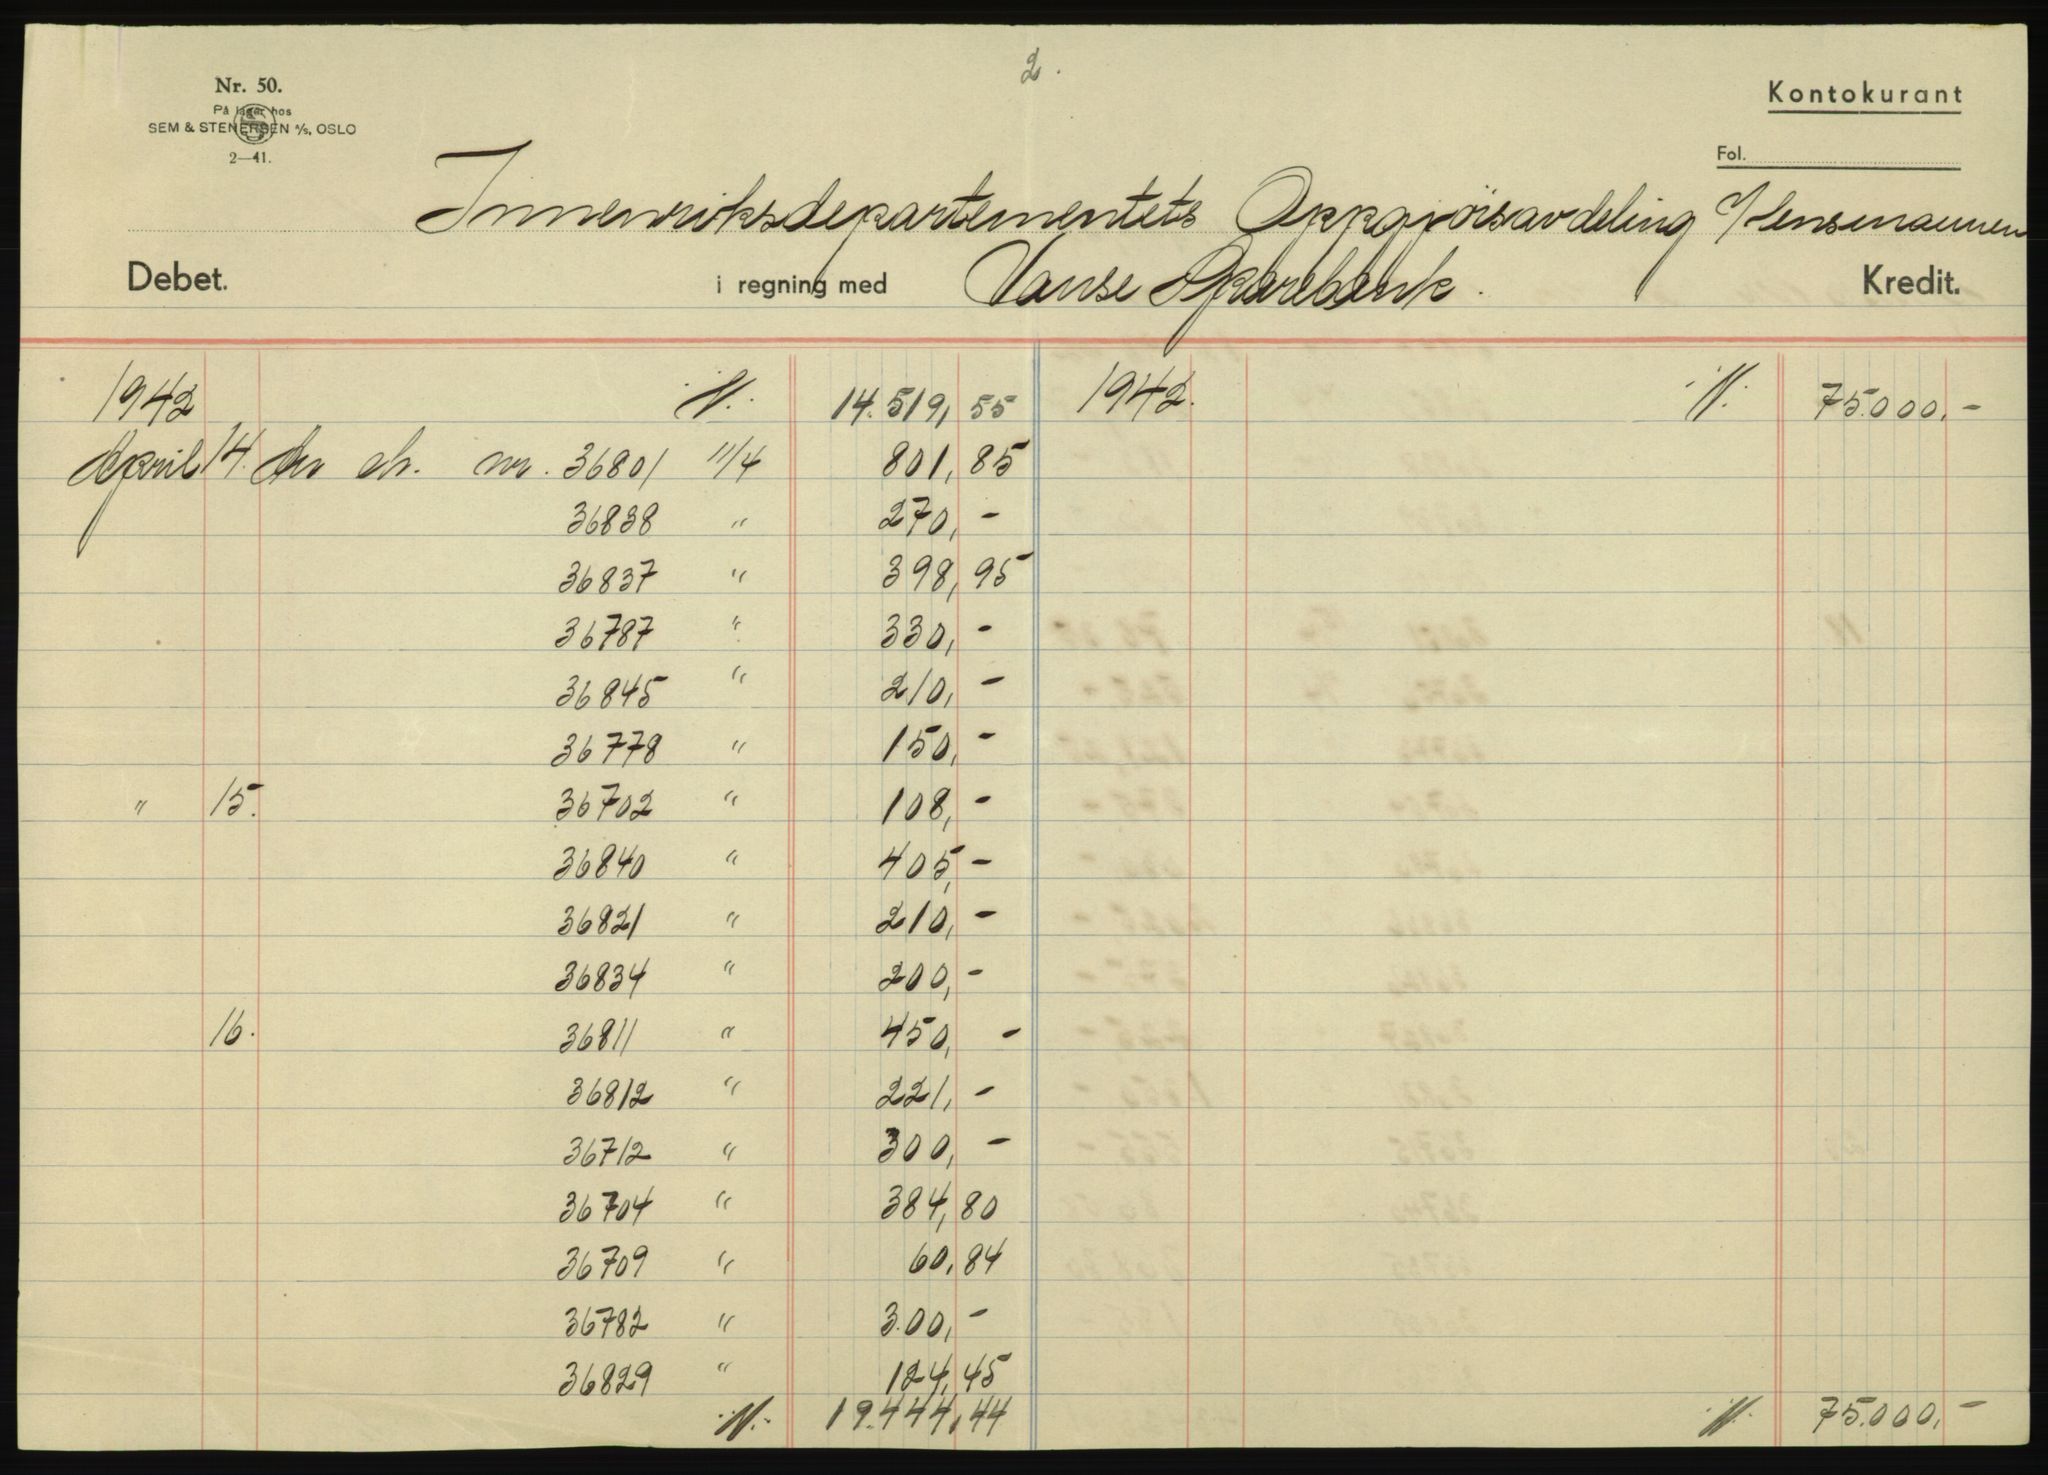 2.
Nr. 50.
På lager hos
SEM & STENERSEN A/S, OSLO
2—41.
Kontokurant
Fol.
Innenriksdepartementets Oppgjörsavdeling v/lensmannen
Debet. i regning med Vanse Sparebank. Kredit.
1942 14.519,55 1942. 75.000,-
April 14. An ch. nr. 36801 11/4 801,85
36838 " 270,-
36837 " 398,95
36787 " 330,-
36845 " 210,-
36778 " 150,-
" 15. 36702 " 108,-
36840 " 405,-
36821 " 210,-
36834 " 200,-
16. 36811 " 450,-
36812 " 221,-
36712 " 300,-
36704 " 384,80
36709 " 60,84
36782 " 300,-
36829 " 124,45
19.444,44 75.000,-